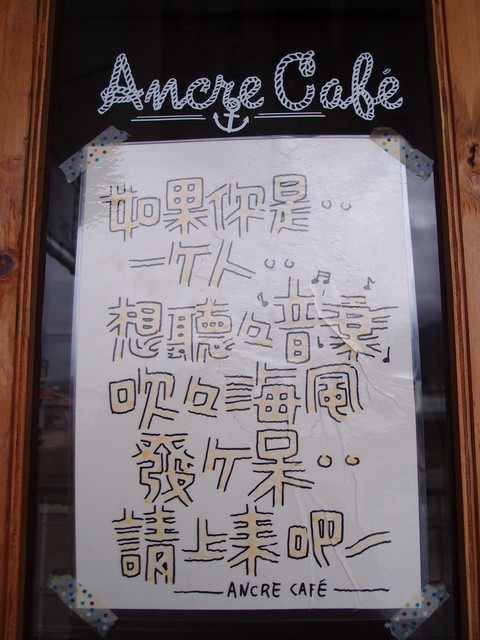 Ancre Café
如果你是..
一ケ人..
想聽々音樂
吹々海風
發ケ呆..
請上來吧~
ANCRE CAFÉ